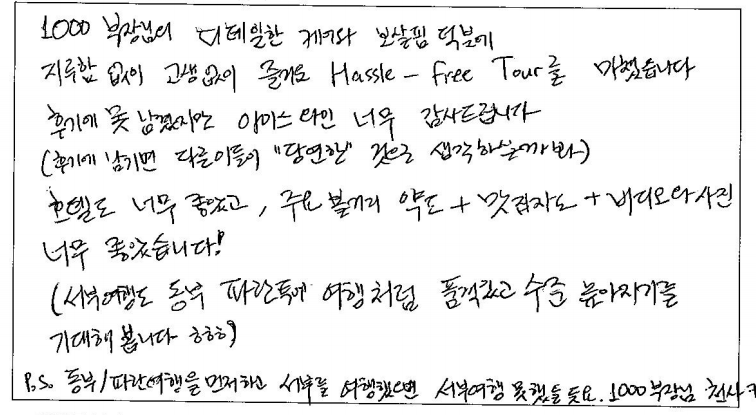 1000 부장님의 디테일한 케어와 보살핌 덕분에
지루함 없이 고생없이 즐거운 Hassle - Free Tour를 마쳤습니다
후기에 못 남겼지만 아이스 와인 너무 감사드립니다
(후기에 남기면 다른이들이 "당연한" 것으로 생각하는가봐)
호텔도 너무 좋았고, 주요 볼거리 약도 + 맛집지도 + 비디오와 사진
너무 좋았습니다!
(서부여행도 동부 파란투어 여행처럼 품격있고 수준 높아지기를
기대해 봅니다 ㅎㅎㅎ)
P.S. 동부/파란여행을 먼저하고 서부를 여행했으면 서부여행 못했을 듯요. 1000부장님